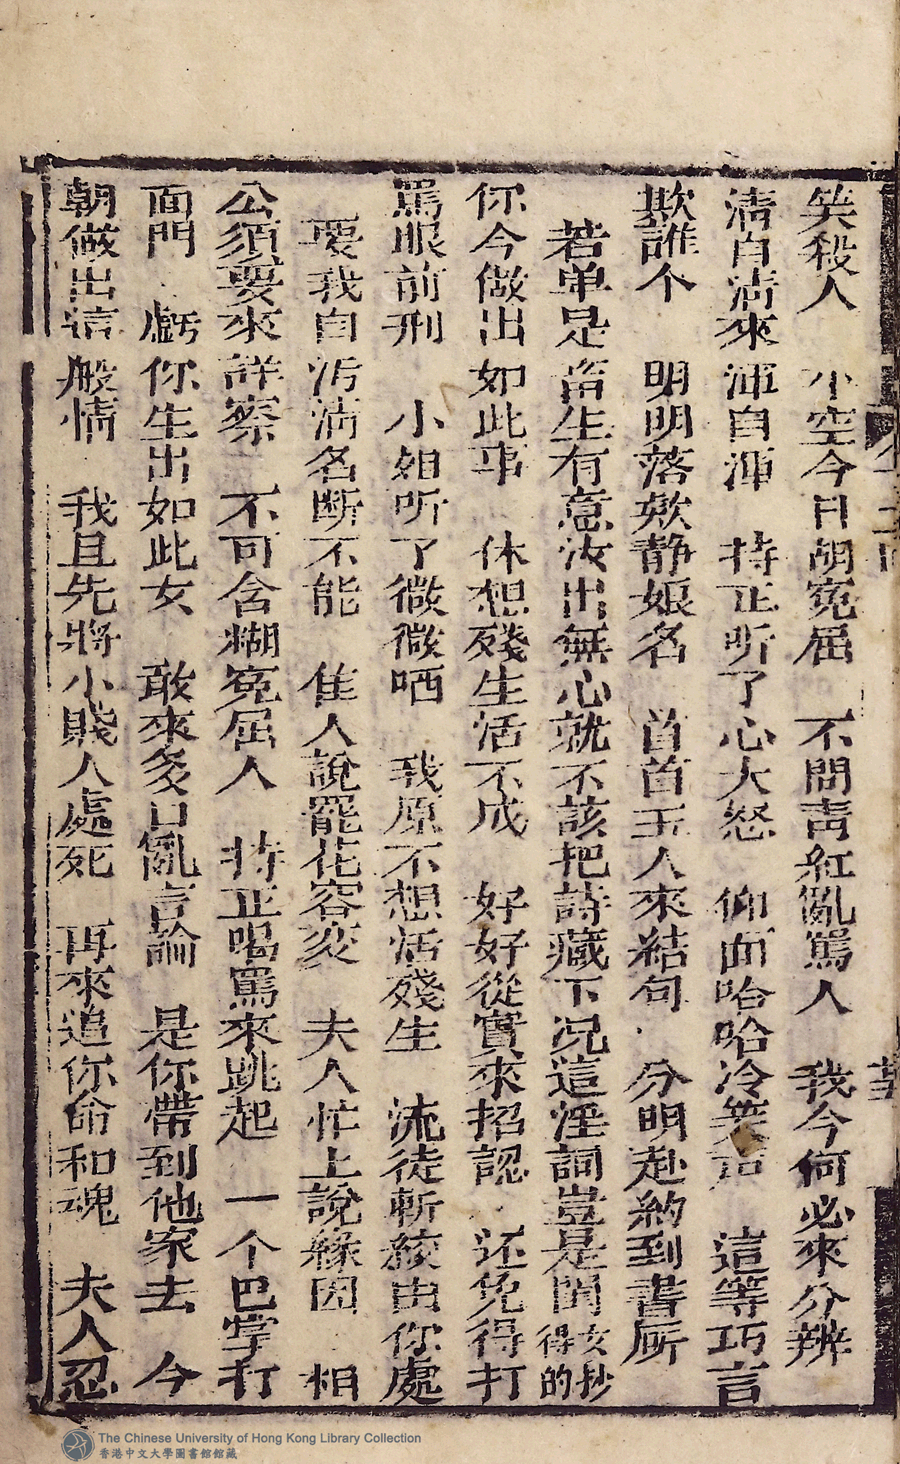 笑殺人　小空今日胡寃屈　不問青紅亂罵人　我今何必來分辨
清自清來渾自渾　持正听了心大怒　仰面哈哈冷笑声　這等巧言
欺誰个　明明落欸静娘名　首首玉人來結句　分明赴約到書厨
若单是畜生有意汝出無心就不該把詩藏下况這淫詞豈是閨女抄得的
你今做出如此事　休想殘生活不成　好好從實來招認　还免得打
罵眼前刑　小姐听了微微哂　我原不想活殘生　流徒斬絞由你處
要我自污清名断不能　隹人說罷花容变　夫人忙上說緣因　相
公須要來詳察　不可含糊寃屈人　持正喝罵來跳起　一个巴掌打
面門　虧你生出如此女　敢來多口亂言論　是你帶到他家去　今
朝做出這般情　我且先將小賤人處死　再來追你命和魂　夫人忍
The Chinese University of Hong Kong Library Collection
香港中文大學圖書館館藏